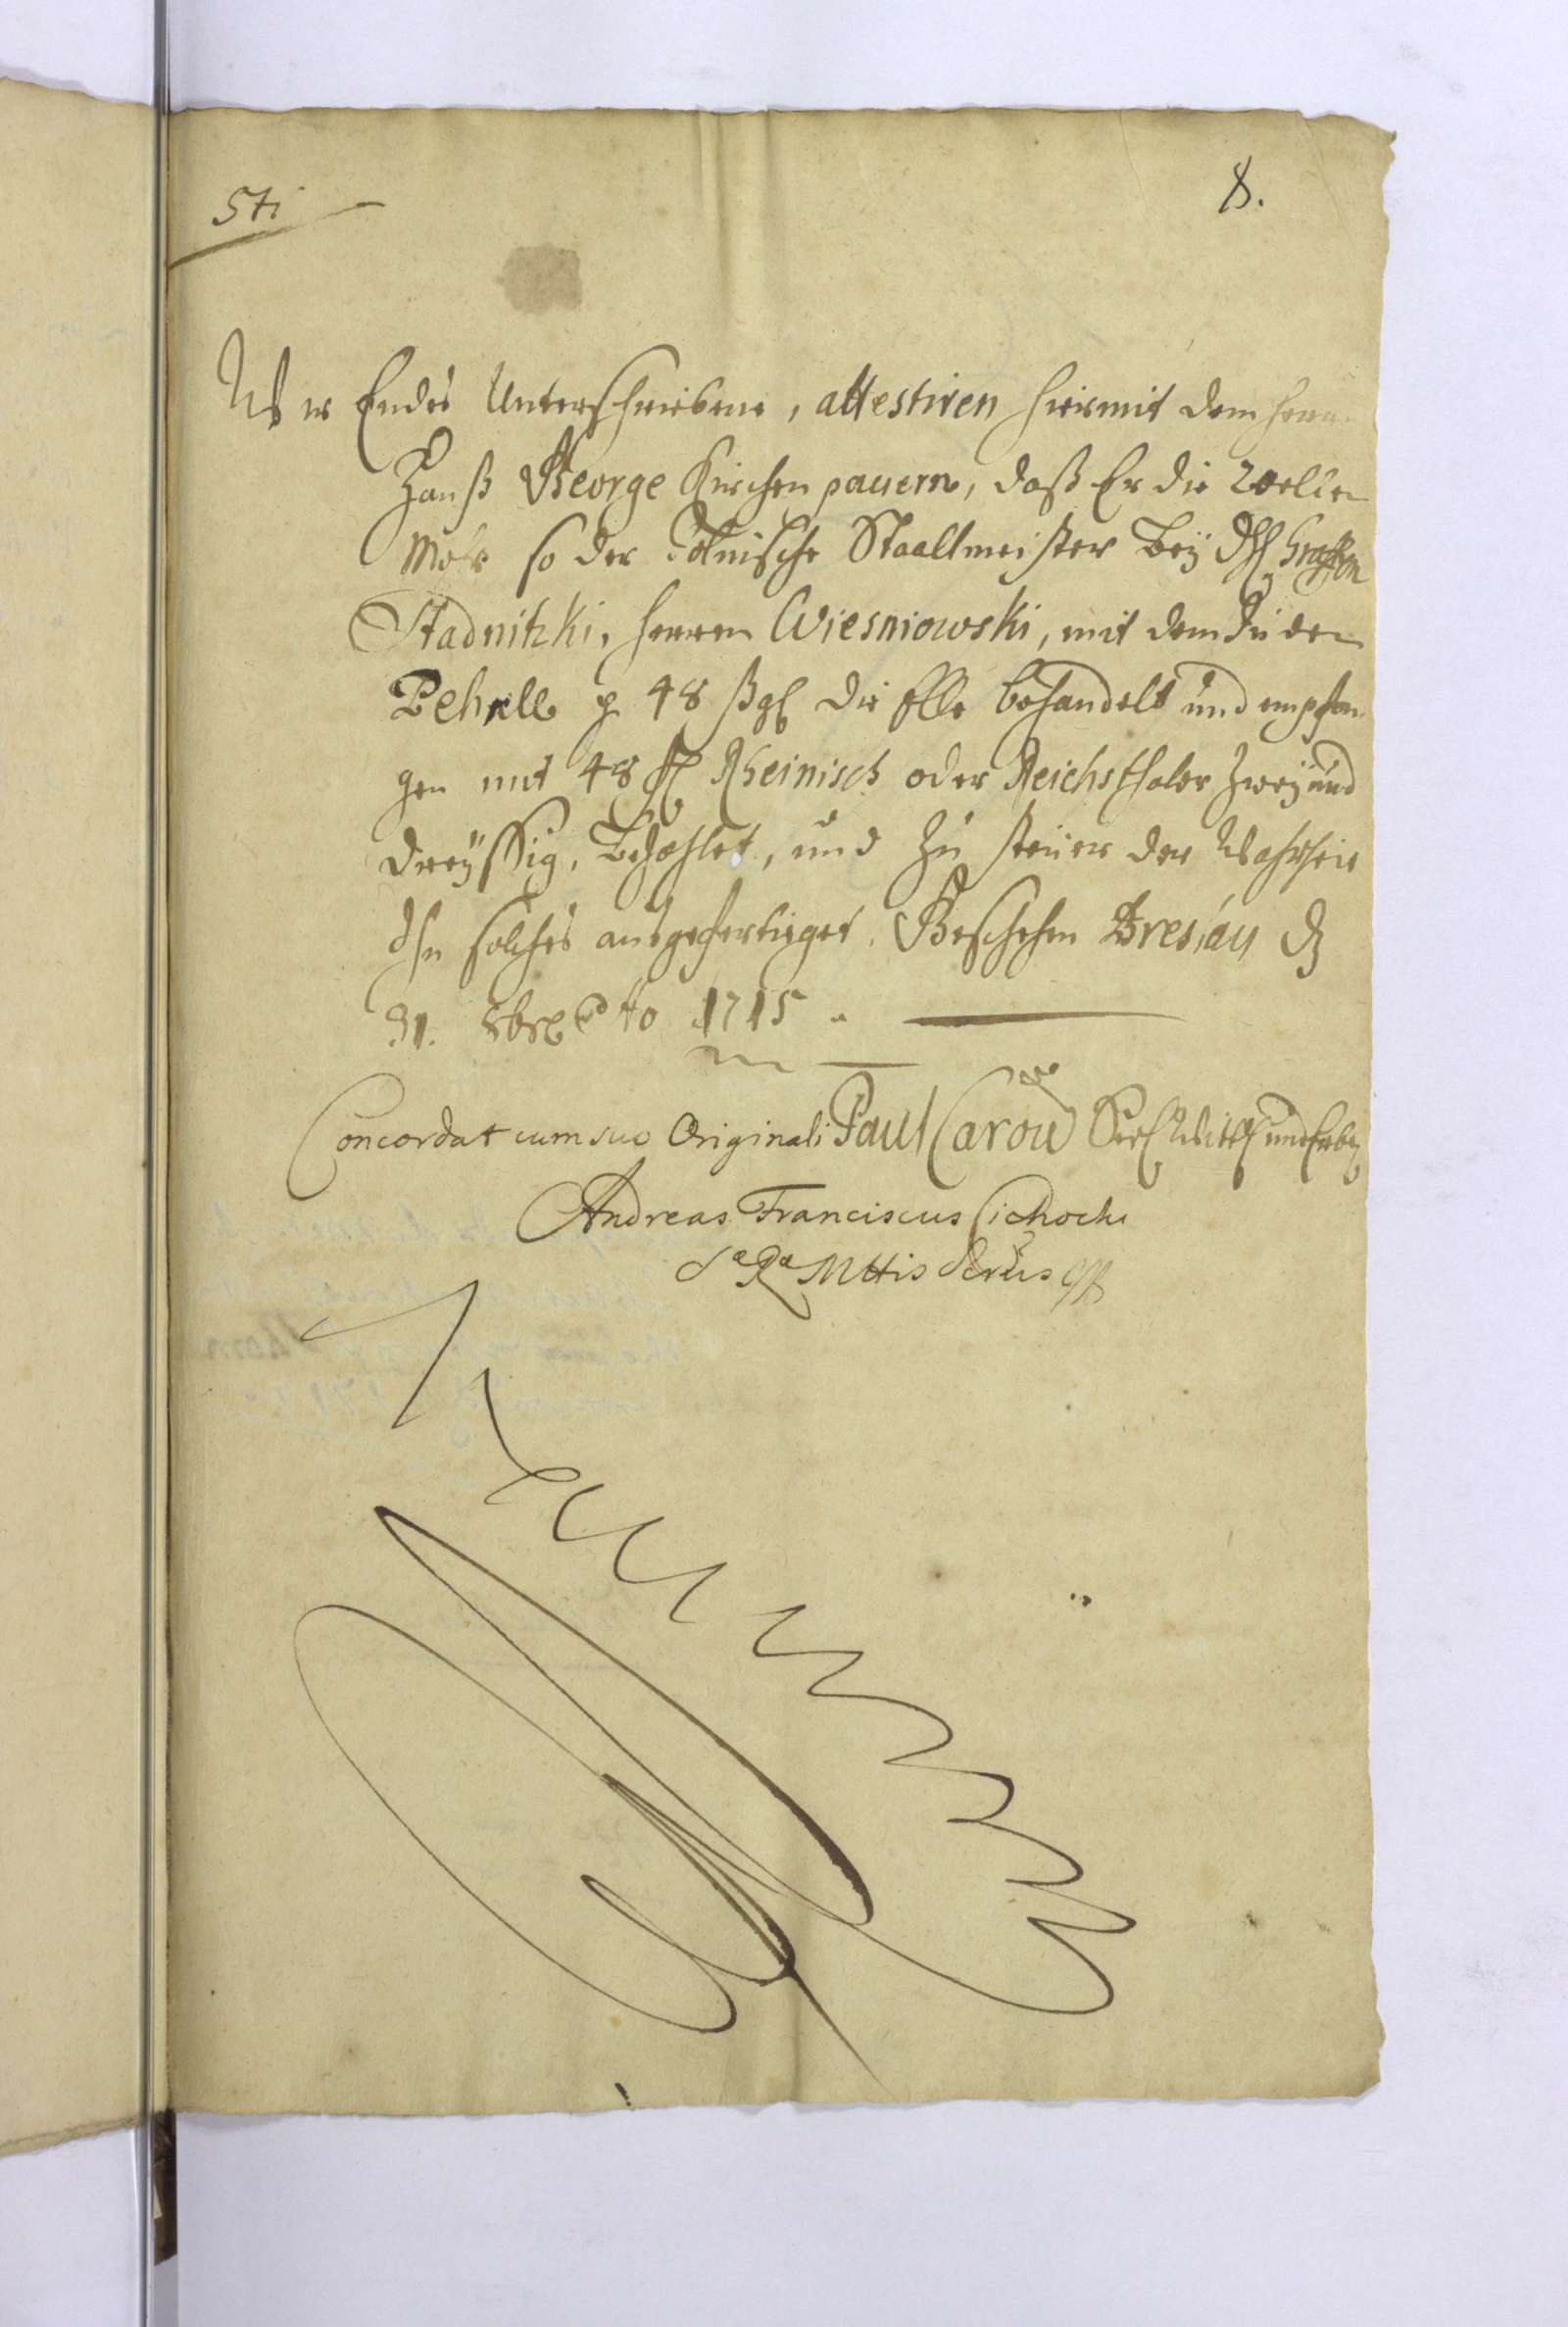 5ti
8.
Wir Endes Unterschriebene, attestiren hiermit dem Herrn
Hanß George Kirchenpauern, daß Er die 20 ellen
Mohr so der Polnische Staallmeister bey H. Graffen
Stadnitzki, Herren Wiesniowski, mit dem Juden
Behrlle p 48 ßgl die Elle behandelt und empfan
gen mit 48 fl Rheinisch oder Reichsthaler Zwey und
dreyssig, Bezahlet, und zu steuer der Wahrheit
Ihn solches ausgefertiget. Geschehen Breslau d
31. 8br 1715
Concordat cum suo Originali Paul Carow Seel Witt und Erben
Andreas Franciscus Cichocki
Sae Rae Mttis Secrius